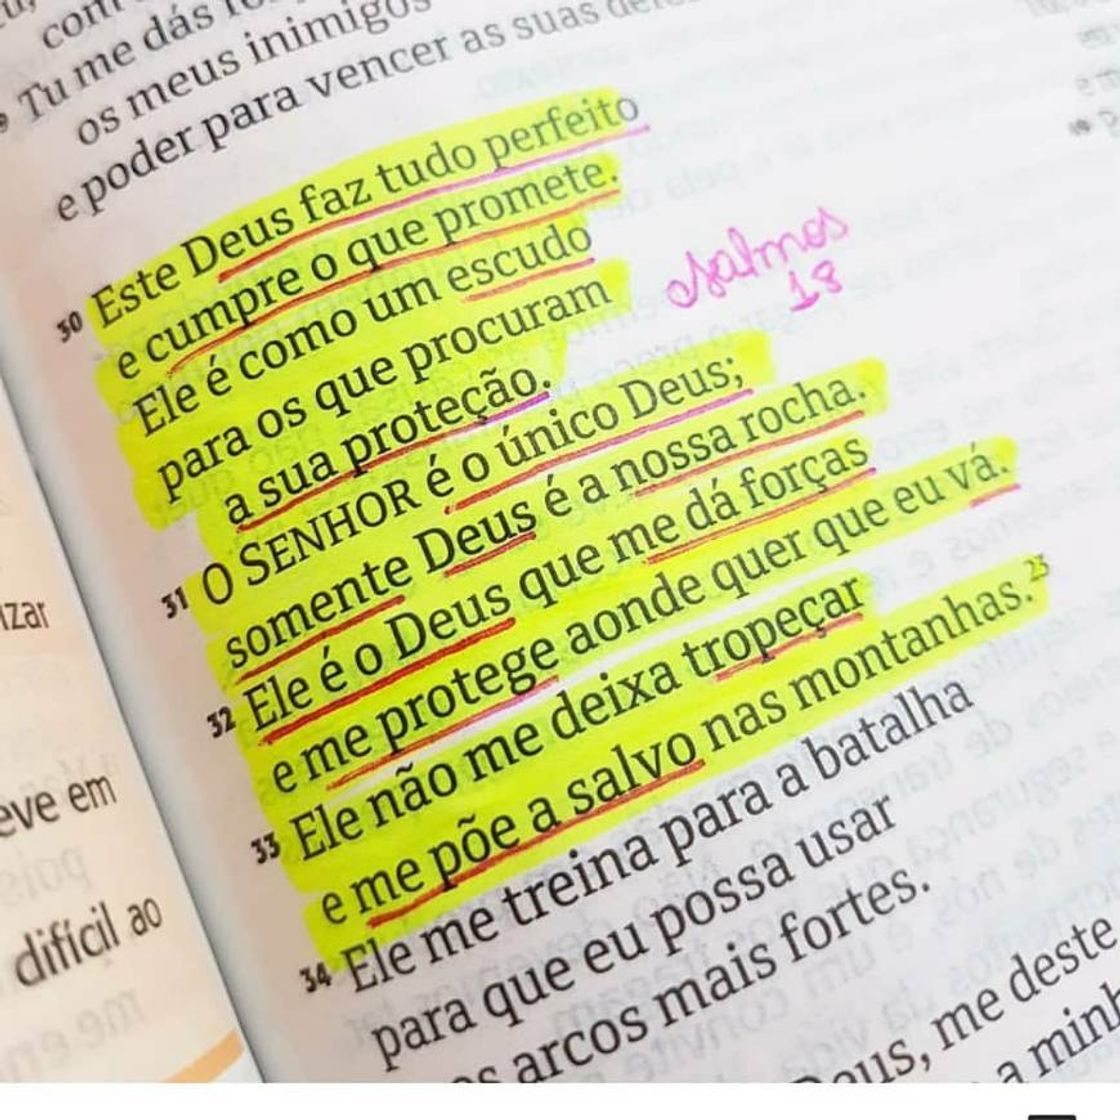 Tu me dás
os meus inimigos
e poder para vencer as suas
30 Este Deus faz tudo perfeito
e cumpre o que promete.
Ele é como um escudo
para os que procuram
a sua proteção.
Salmos
18
31 O SENHOR é o único Deus;
somente Deus é a nossa rocha.
32 Ele é o Deus que me dá forças
e me protege aonde quer que eu vá.
33 Ele não me deixa tropeçar
e me põe a salvo nas montanhas.23
34 Ele me treina para a batalha
para que eu possa usar
arcos mais fortes.
me deste
a
eve em
difícil ao